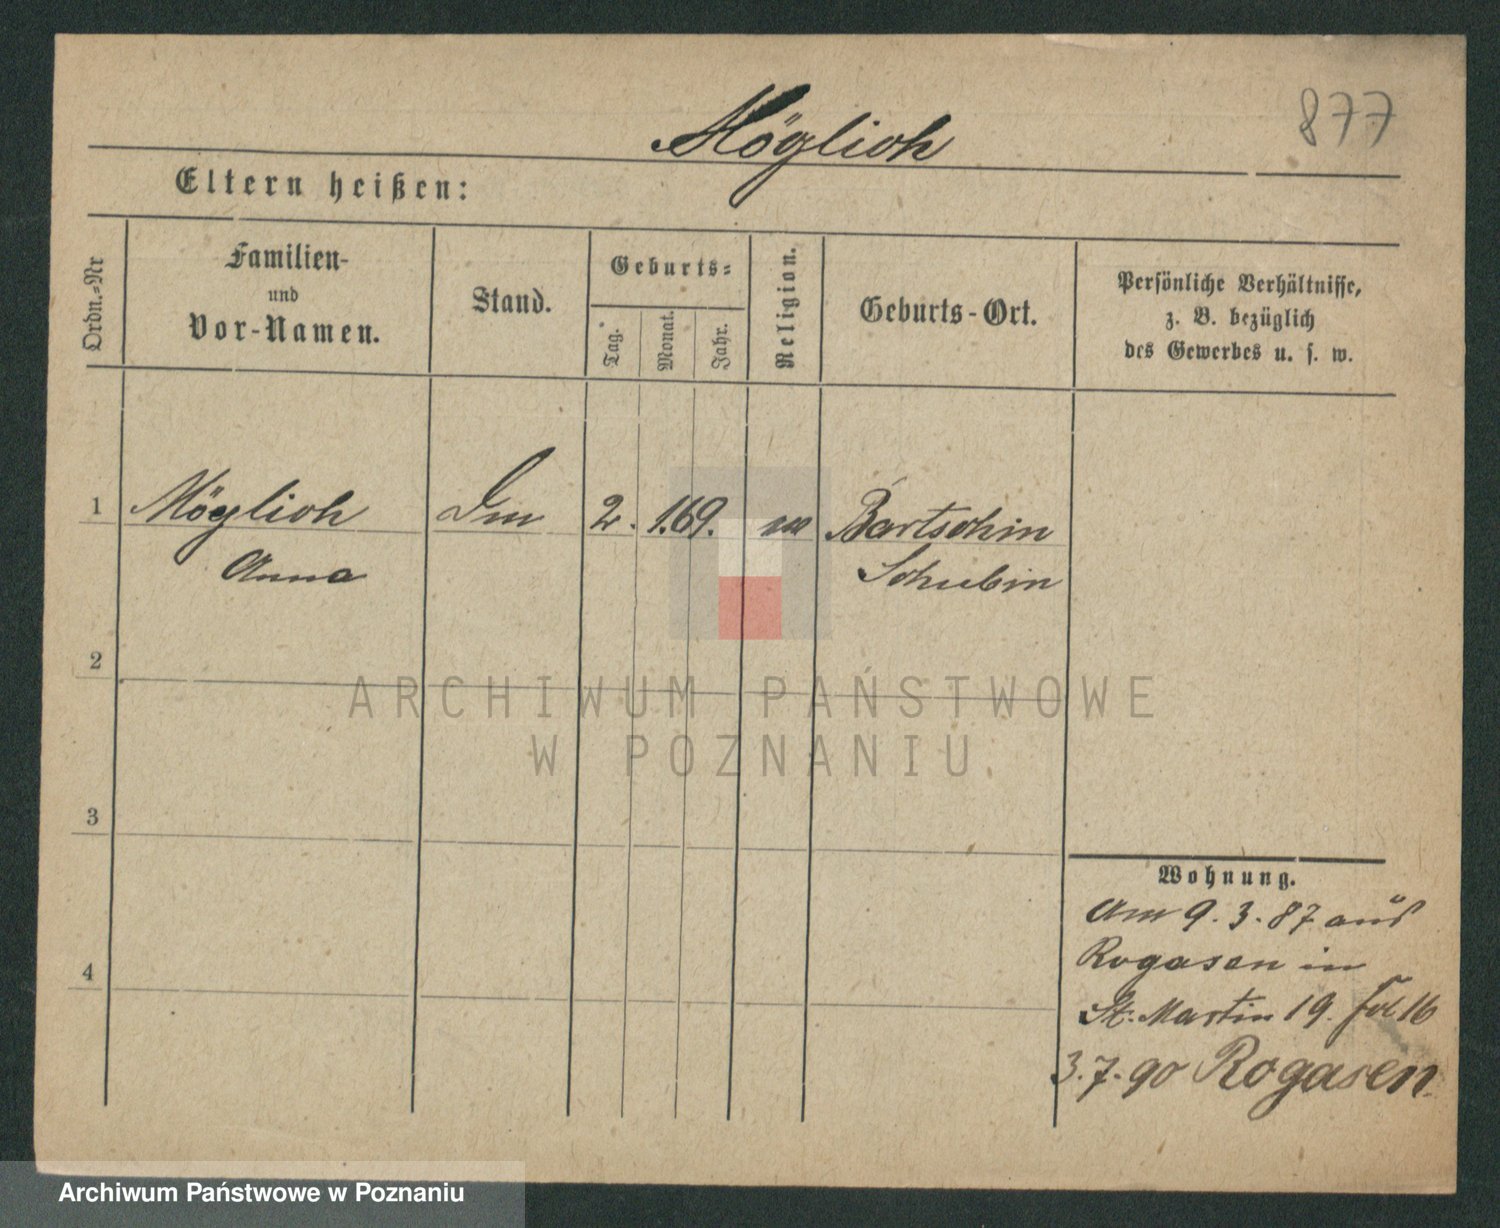 Möglich
877
Eltern heißen:
Ordn.=Nr
Familien-
und
Vor-Namen.
Stand.
Geburts=
Tag.
Monat.
Jahr.
Religion.
Geburts-Ort.
Persönliche Verhältnisse,
z. B. bezüglich
des Gewerbes u. s. w.
1 Möglich 2. 1.69. Bartschin
Anna Schubin
2
3
4
Wohnung.
Am 9.3.87 aus
Rogasen in
St. Martin 19. fol 16
3.7.90 Rogasen
ARCHIWUM PAŃSTWOWE
W POZNANIU
Archiwum Państwowe w Poznaniu